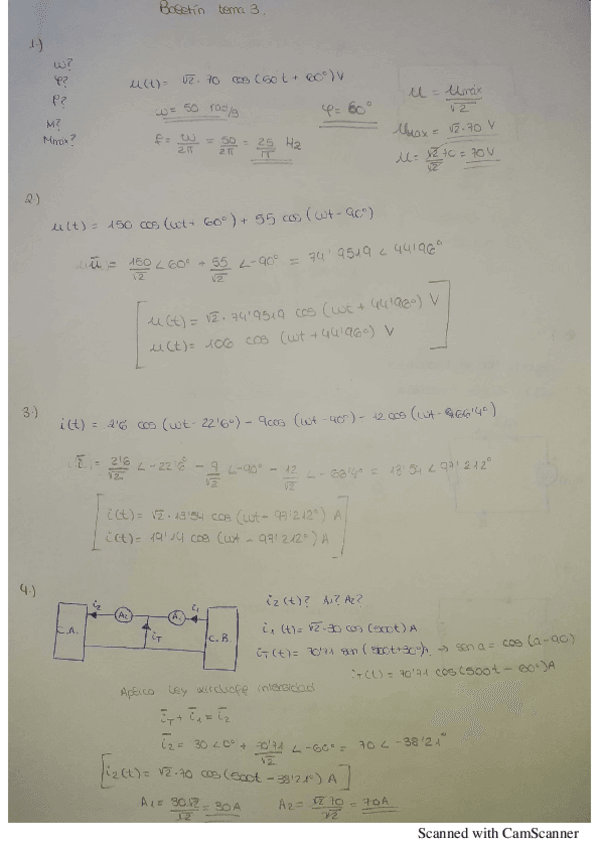 Boletín tema 3.
1.)
ω?
φ?
f?
M?
Mmax?
u(t) = √2·70 cos(50t + 60°) V
ω = 50 rad/s
φ = 60°
f = ω/2π = 50/2π = 25/π Hz
u = umáx/√2
umax = √2·70 V
u = √2·70/√2 = 70V
2.)
u(t) = 150 cos(ωt + 60°) + 55 cos(ωt - 90°)
ū = 150/√2 ∠60° + 55/√2 ∠-90° = 74'9519 ∠44'98°
u(t) = √2·74'9519 cos(ωt + 44'98°) V
u(t) = 106 cos(ωt + 44'98°) V
3.)
i(t) = 2'6 cos(ωt - 22'6°) - 9cos(ωt - 90°) - 12cos(ωt - 66'4°)
2'6/√2 ∠-22'6° - 9/√2 ∠-90° - 12/√2
= 13'54 ∠97'212°
i(t) = √2·13'54 cos(ωt - 97'212°) A
i(t) = 19'14 cos(ωt - 97'212°) A
4.)
i2 A2 A1 i1
C.A. iT C.B.
i2(t)? A1? A2?
i1(t) = √2·30 cos(500t) A
iT(t) = 70'71 sen(500t+30°) → sen a = cos(a-90)
iT(t) = 70'71 cos(500t - 60°) A
Aplico Ley kirchoff intensidad
īT + ī1 = ī2
ī2 = 30∠0° + 70'71/√2 ∠-60° = 70 ∠-38'21°
i2(t) = √2·70 cos(500t - 38'21°) A
A1 = 30√2/√2 = 30A A2 = √2 70/√2 = 70A
Scanned with CamScanner